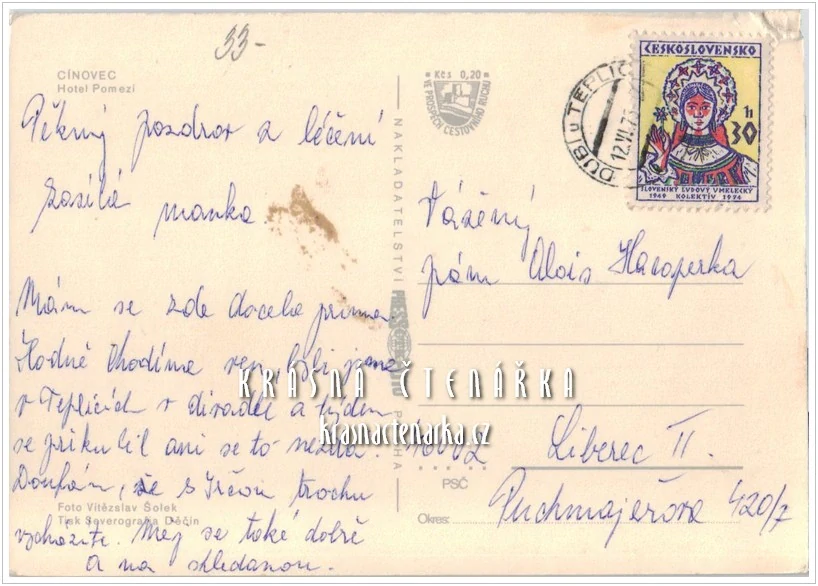 33-
CÍNOVEC
Hotel Pomezí
Pěkný pozdrav z léčení
zasílá manka.
Mám se zde docela prima.
Hodně chodíme ven, byli jsme
v Teplicích v divadle a týden
se přikulil ani se to nezdá.
Doufám, že s Irčou trochu
vycházíte. Měj se také dobře
a na shledanou.
Foto Vítězslav Šolek
Tisk Severografia Děčín
NAKLADATELSTVÍ PRESSFOTO PRAHA
Kčs 0,20
VE PROSPĚCH CESTOVNÍHO RUCHU
DUBÍ U TEPLIC
12.VI.75
ČESKOSLOVENSKO
30 h
SLOVENSKÝ ĽUDOVÝ UMELECKÝ
1949 KOLEKTÍV 1974
Vážený
pán Alois Hacaperka
46002 Liberec II.
PSČ
Puchmajerova 420/7
Okres:
KRÁSNÁ ČTENÁŘKA
krasnactenarka.cz